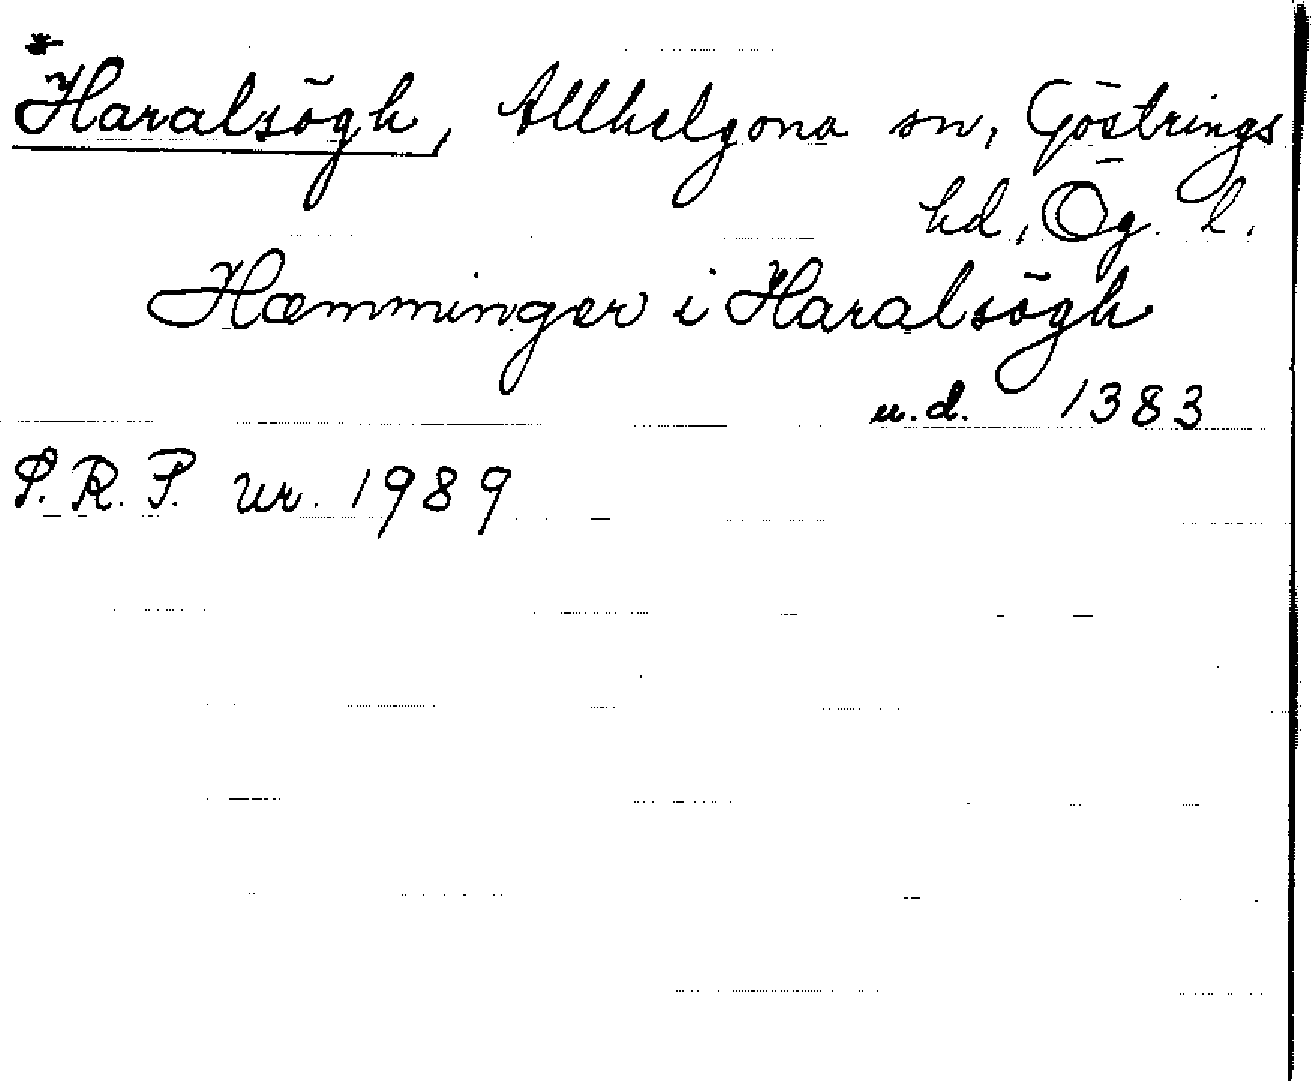 *
Haralsögh, Allhelgona sn, Göstrings
hd, Ög. l.
Hæmminger i Haralsögh
u.d. 1383
P.R.P. nr. 1989